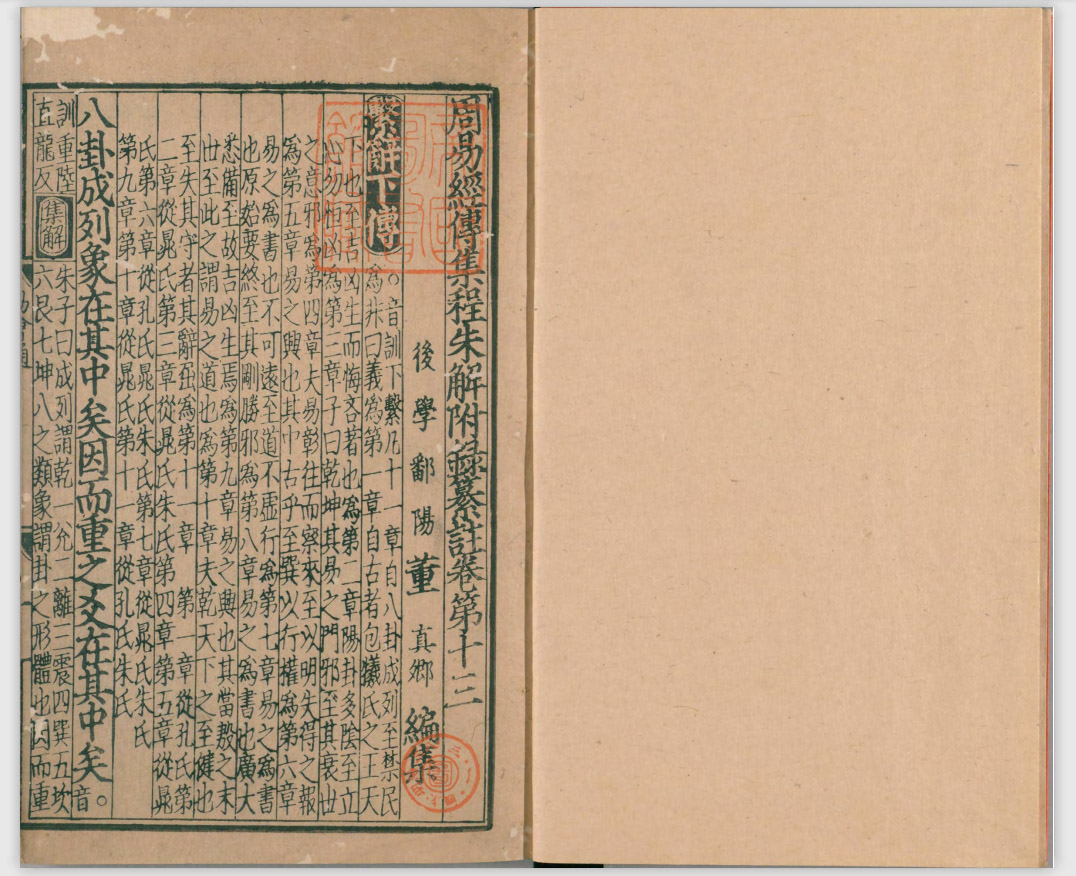 周易經傳集程朱解附錄纂註卷第十三
後學鄱陽董真卿編集
繫辭下傳
○音訓下繫凡十一章自八卦成列至禁民
為非曰義為第一章自古者包犧氏之王天
下也至吉凶生而悔吝著也為第二章陽卦多陰至立
心勿恒凶為第三章子曰乾坤其易之門邪至其衰世
之意邪為第四章夫易彰往而察來至以明失得之報
為第五章易之興也其中古乎至巽以行權為第六章
易之為書也不可遠至道不虛行為第七章易之為書
也原始要終至其剛勝邪為第八章易之為書也廣大
悉備至故吉凶生焉為第九章易之興也其當殷之末
世至此之謂易之道也為第十章夫乾天下之至健也
至失其守者其辭屈為第十一章 第一章從孔氏第
二章從晁氏第三章從晁氏朱氏第四章第五章從晁
氏第六章從孔氏晁氏朱氏第七章從晁氏朱氏
第九章第十章從晁氏第十一章從孔氏朱氏
八卦成列象在其中矣因而重之爻在其中矣○音
訓重陸
直龍反
集解
朱子曰成列謂乾一兌二離三震四巽五坎
六艮七坤八之類象謂卦之形體也因而重